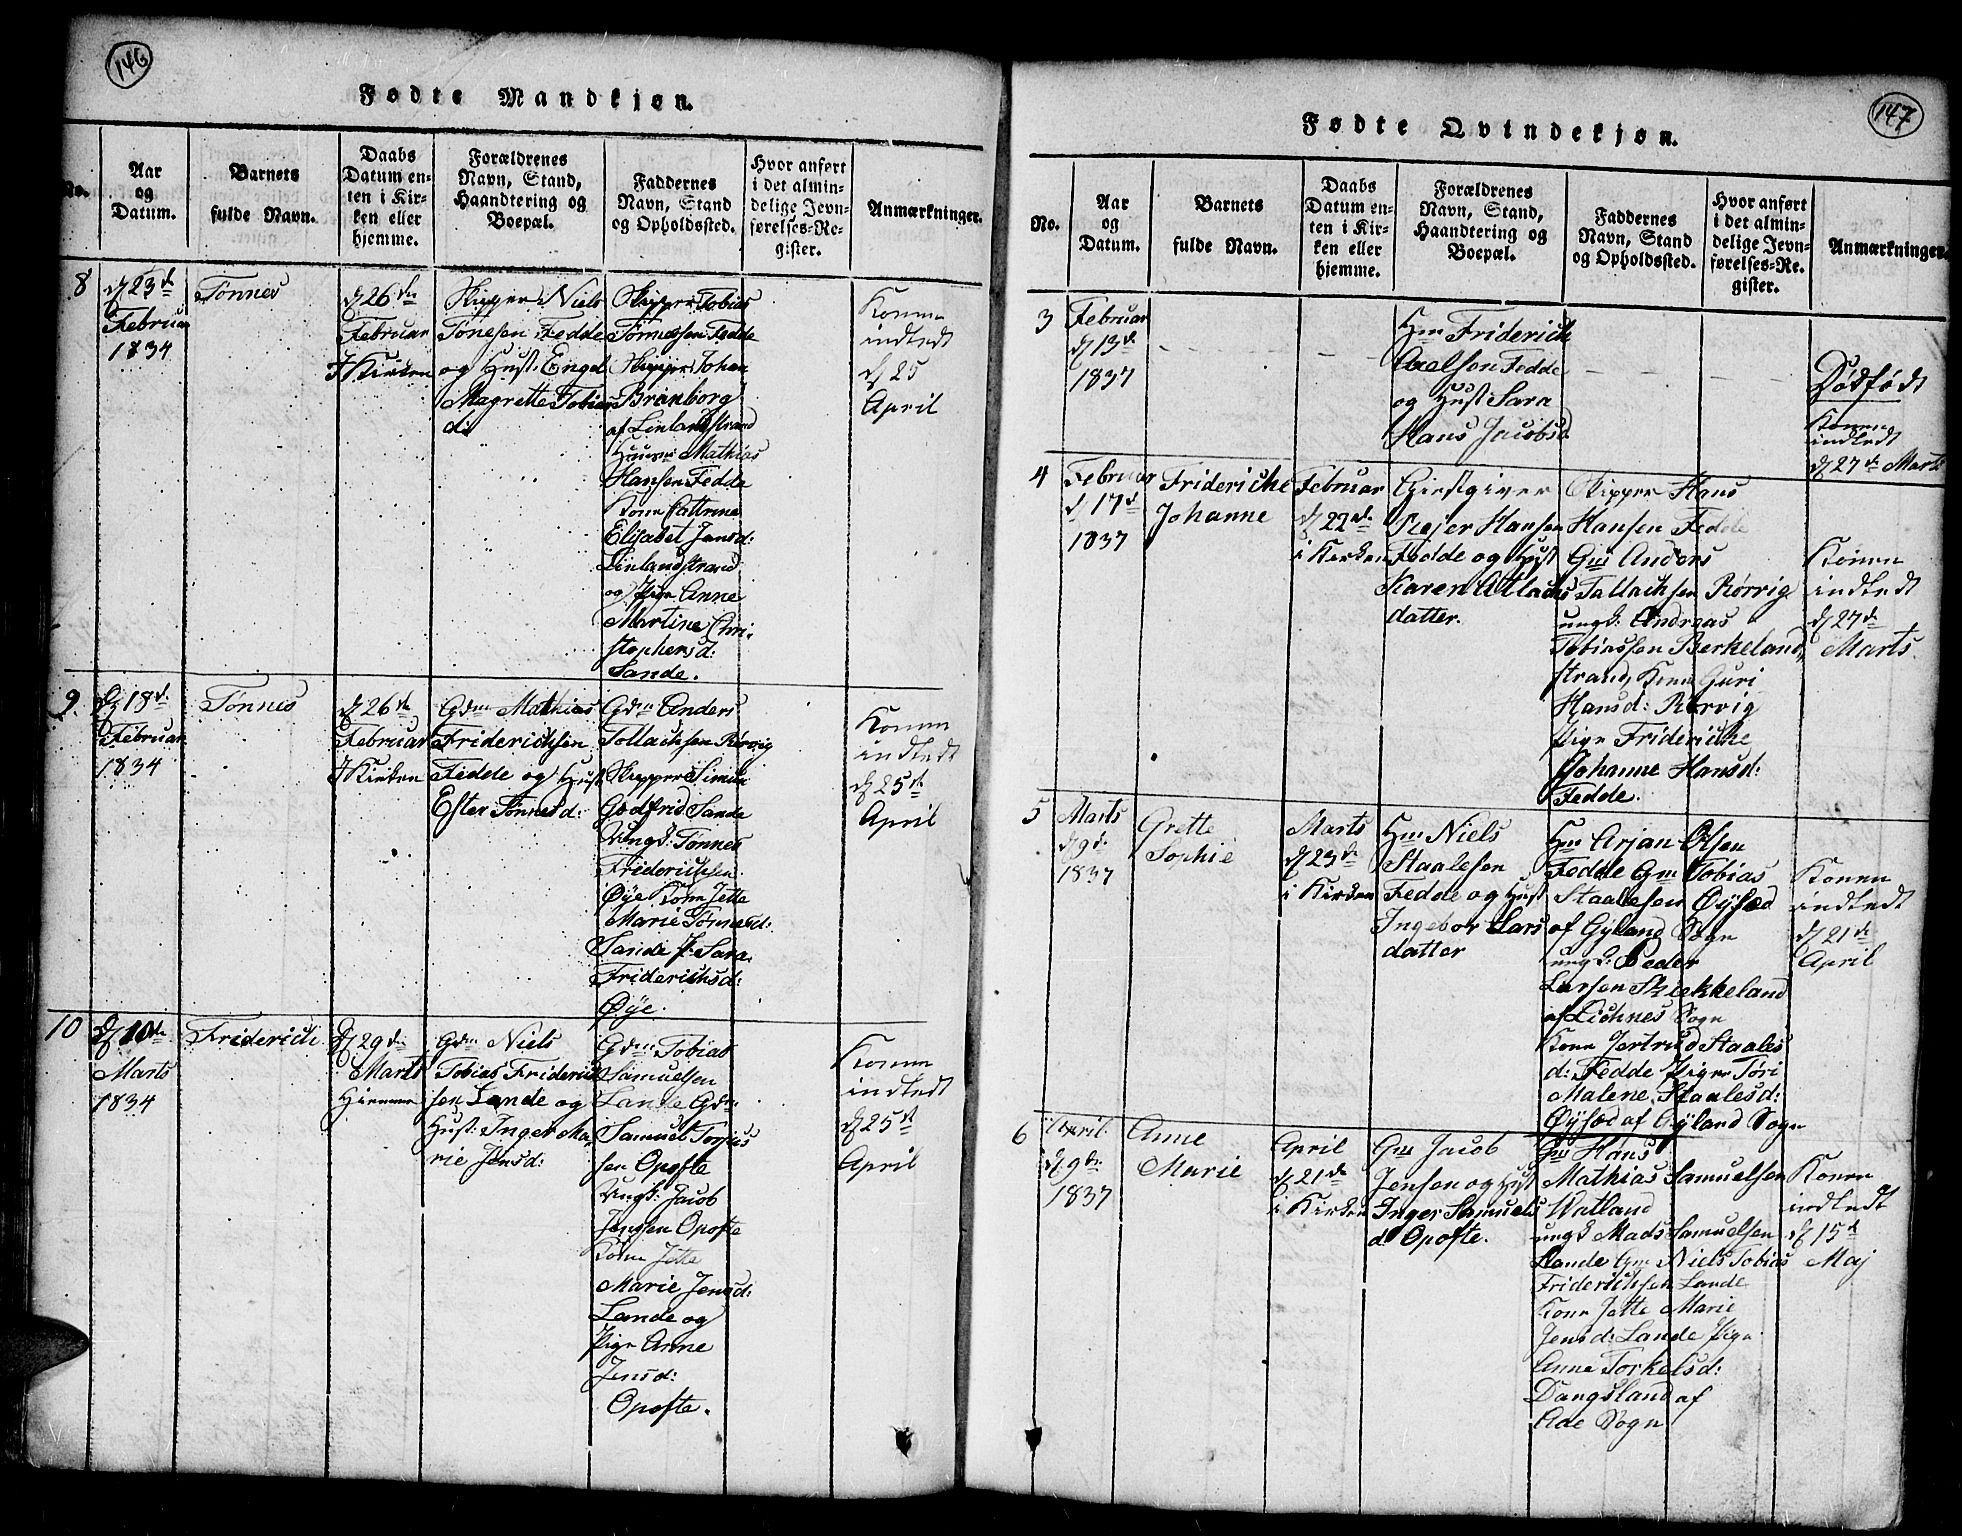 146
Fødte Mandkjøn.
No.
Aar
og
Datum.
Barnets
fulde Navn.
Daabs
Datum en-
ten i Kir-
ken eller
hjemme.
Forældrenes
Navn, Stand,
Haandtering og
Boepæl.
Faddernes
Navn, Stand
og Opholdssted.
Hvor anført
i det almin-
delige Jevn-
førelses-Re-
gister.
Anmærkninger.
8
d 23d
Februar
1834
Tønnes
d 26de
Februar
I Kirken
Skipper Niels
Tønesen Fedde
og Hust. Engel
Magrette Tobias
d:
Skipper Tobias
Tønnessen Fedde
Skipper Johan
Branborg
af Linlandstrand
Mathias
Hansen Fedde
Kone Cattrine
Elisabet Jansd:
Linlandstrand
og Pige Anne
Martine Chri-
stophersd:
Sande.
Konen
indledt
d 25
April
9
d 18d.
Februar
1834
Tønnes
d 26de
Februar
I Kirken
Gdm Mathias
Friderichsen
Fedde og Hust
Ester Tønnesd:
Gdm Anders
Tollachsen Rørvig
Skipper Simon
Godfrid Sande
Ungk: Tønnes
Friderichsen
Øye Kone Jette
Marie Tønnesd:
Sande P: Sara
Friderichsd:
Øye.
Konen
indledt
d 25d.
April
10
d 10de
Marts
1834
Friderich
d 29de
Marts
Hjemme
Gdm Niels
Tobias Friderich
sen Lande og
Hust: Inger Ma
rie Jensd:
Gdm Tobias
Samuelsen
Lande Gdm:
Samuel Torjus
sen Opofte
Ungk: Jacob
Jensen Opofte
Kone Jette
Marie Jensd:
Lande og
Pige Anne
Jensd:
Opofte.
Konen
indledt
d 25d
April
147
Fødte Qvindekjøn.
No.
Aar
og
Datum.
Barnets
fulde Navn.
Daabs
Datum en-
ten i Kir-
ken eller
hjemme.
Forældrenes
Navn, Stand,
Haandtering og
Boepæl.
Faddernes
Navn, Stand
og Opholdssted.
Hvor anført
i det almin-
delige Jevn-
førelses-Re-
gister.
Anmærkninger.
3
Februar
d 13d.
1837
Hm Friderich
Axelsen Fedde
og Hust Sara
Hans Jacobsd.
Dødfødt
Konen
indledt
d 27de Marts
4
Februar
d 17d
1837
Frideriche
Johanne
Februar
d 22d.
i Kirken
Giestgiver
Reier Hansen
Fedde og Hust
Karen Atlachs
datter.
Skipper Hans
Hansen Fedde
Gm Anders
Tallachsen Rørvig
ungk: Andreas
Tobiassen Berkeland
strand, Kone Guri
Hansd: Rørvig
Pige Frideriche
Johanne Hansd:
Fedde.
Konen
indledt
d 27de
Marts.
5
Marts
d 9d.
1837
Grette
Sophie
Marts
d 23de
i Kirken
Hm Niels
Staalesen
Fedde og Hust
Ingebor Lars
datter
Hm Arjan Olsen
Fedde Gm Tobias
Staalesen Øysæd
af Gyland Sogn
ungk: Peder
Larsen Strekkeland
af Lichnes Sogn
Kone Jertrud Staales
d: Fedde Pige Tøri
Malene Staalesd:
Øysæd af Gyland Sogn
Konen
indledt
d 21de
April
6
April.
d 9de
1837
Anne
Marie
April
d 21de
i Kirken
Gm Jacob
Jensen og Hust
Inger Samuels
d. Opofte.
Gm Hans
Mathias Samuelsen
Watland
ungk Mads Samuelsen
Lande Gm Niels Tobias
Friderichsen Lande
Kone Jette Marie
Jensd: Lande Pige
Anne Torkelsd:
Dangsland af
Ade Sogn
Konen
indledt
d 15d
Maj